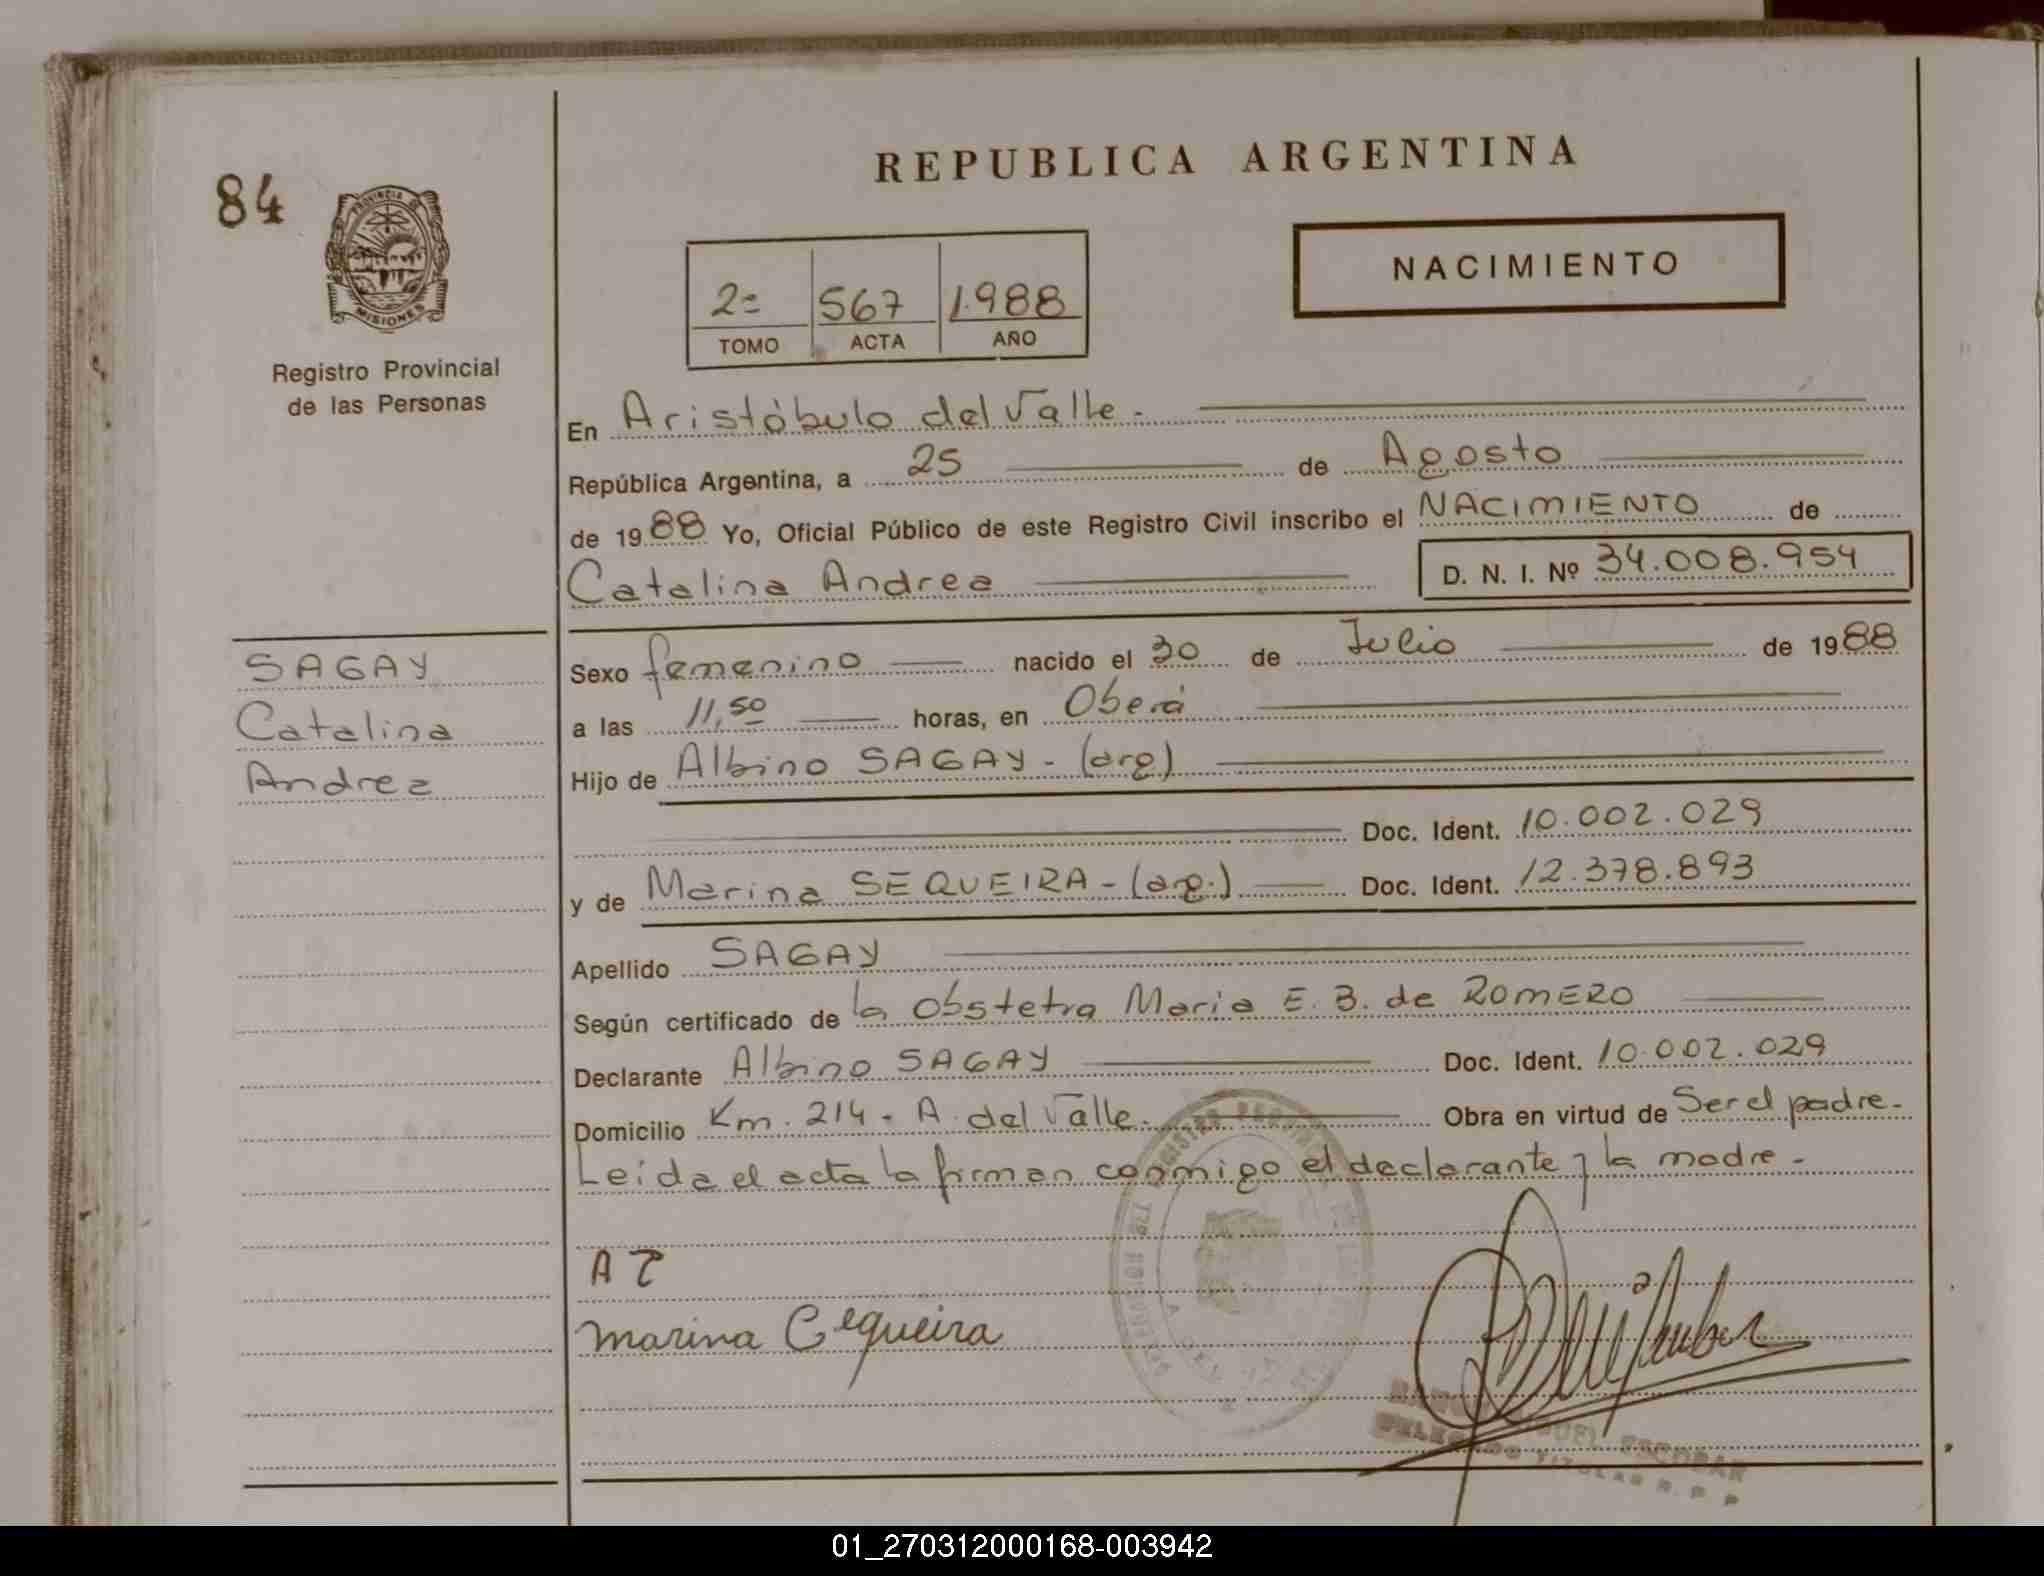 REPUBLICA ARGENTINA
84
PROVINCIA
MISIONES
Registro Provincial
de las Personas
NACIMIENTO
2= 567 1.988
TOMO ACTA AÑO
En Aristóbulo del Valle.-
República Argentina, a 25 de Agosto
de 1988 Yo, Oficial Público de este Registro Civil inscribo el NACIMIENTO de
Catalina Andrea D. N. I. Nº 34.008.954
SAGAY
Catalina
Andrea
Sexo femenino nacido el 30 de Julio de 1988
a las 11,50 horas, en Oberá
Hijo de Albino SAGAY - (arg)
Doc. Ident. 10.002.029
y de Marina SEQUEIRA - (arg.) Doc. Ident. 12.378.893
Apellido SAGAY
Según certificado de la Obstetra Maria E. B. de ROMERO
Declarante Albino SAGAY Doc. Ident. 10.002.029
Domicilio Km. 214 - A. del Valle. Obra en virtud de Ser el padre.-
Leída el acta la firman conmigo el declarante y la madre.-
Marina Cequeira
ESCOBAR
TITULAR R. P. P
01_270312000168-003942